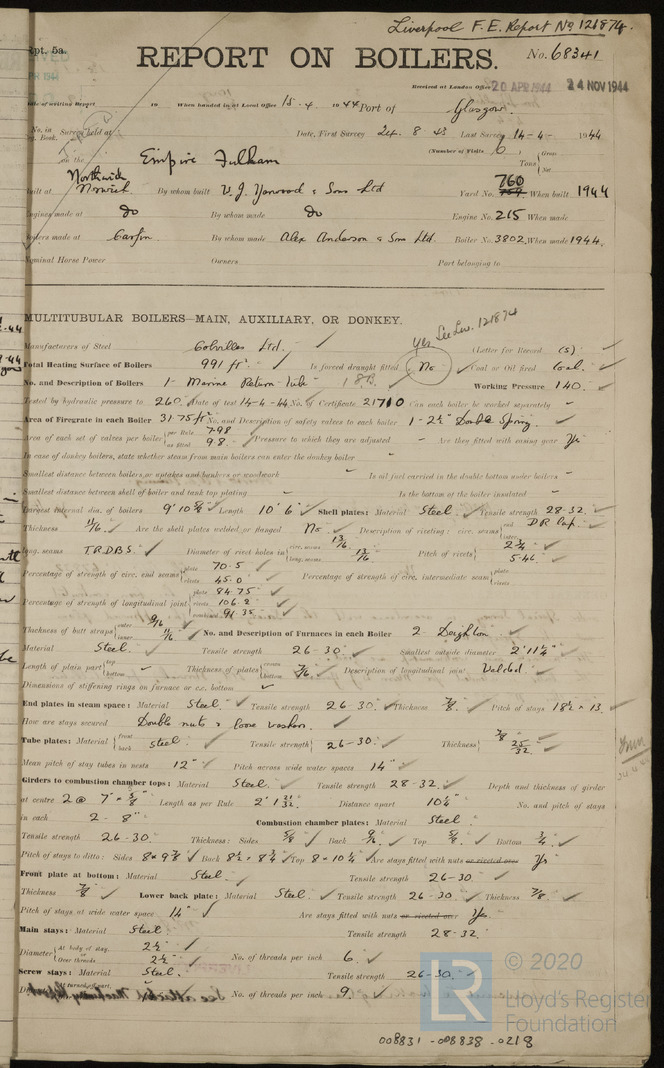 Liverpool F.E. Report No 121874.
Rpt. 5a.
REPORT ON BOILERS. No. 68341
Received at London Office 20 APR 1944 24 NOV 1944
Date of writing Report 19 When handed in at Local Office 15.4. 1944 Port of Glasgow.
No. in Survey held at Date, First Survey 24. 8 43 Last Survey 14-4- 1944
Book. (Number of Visits 6) Gross
on the Empire Fulham Tons Net
Northwich 760
Built at Norwich By whom built W. J. Yarwood & Sons Ltd Yard No. 759 When built 1944
Engines made at do By whom made do Engine No. 215 When made
Boilers made at Carfin. By whom made Alex Anderson & Sons Ltd. Boiler No. 3802. When made 1944.
Nominal Horse Power Owners Port belonging to
MULTITUBULAR BOILERS—MAIN, AUXILIARY, OR DONKEY.
yes See Lev. 121874
Manufacturers of Steel Colvilles Ltd. (Letter for Record (S)
Total Heating Surface of Boilers 991 ft² Is forced draught fitted No Coal or Oil fired Coal.
No. and Description of Boilers 1- Marine Return Tube 1 SB. Working Pressure 140.
Tested by hydraulic pressure to 260 Date of test 14-4-44 No. of Certificate 21710 Can each boiler be worked separately -
Area of Firegrate in each Boiler 31.75 ft² No. and Description of safety valves to each boiler 1-2½" Double Spring.
Area of each set of valves per boiler per Rule 7.98 as fitted 9.8 Pressure to which they are adjusted - Are they fitted with easing gear Yes
In case of donkey boilers, state whether steam from main boilers can enter the donkey boiler -
Smallest distance between boilers or uptakes and bunkers or woodwork - Is oil fuel carried in the double bottom under boilers -
Smallest distance between shell of boiler and tank top plating - Is the bottom of the boiler insulated -
Largest internal dia. of boilers Length 10' 6" Shell plates: Material Steel. Tensile strength 28-32.
Thickness 11/16 Are the shell plates welded or flanged No. Description of riveting: circ. seams end DR lap.
long. seams T.R.D.B.S. Diameter of rivet holes in circ. seams 13/16 long. seams 13/16 Pitch of rivets 2¾ 5.46
Percentage of strength of circ. end seams plate 70.5 rivets 45.0 Percentage of strength of circ. intermediate seam plate rivets
Percentage of strength of longitudinal joint plate 84.75 rivets 106.2 combined 91.35
Thickness of butt straps outer 9/16 inner 11/16 No. and Description of Furnaces in each Boiler 2 Deighton
Material Steel. Tensile strength 26-30 Smallest outside diameter 2' 11¼"
Length of plain part top bottom - Thickness of plates crown bottom 7/16 Description of longitudinal joint Welded.
Dimensions of stiffening rings on furnace or c.c. bottom -
End plates in steam space: Material Steel. Tensile strength 26-30. Thickness 7/8. Pitch of stays 18½ × 13
How are stays secured Double nuts & loose washers.
Tube plates: Material front back Steel. Tensile strength 26-30. Thickness 7/8 25/32
Mean pitch of stay tubes in nests 12" Pitch across wide water spaces 14"
Girders to combustion chamber tops: Material Steel. Tensile strength 28-32. Depth and thickness of girder
at centre 2 @ 7" × 5/8" Length as per Rule 2' 1 21/32 Distance apart 10¼" No. and pitch of stays
in each 2 - 8" Combustion chamber plates: Material Steel
Tensile strength 26-30. Thickness: Sides 5/8 Back 9/16 Top 5/8 Bottom ¾
Pitch of stays to ditto: Sides 8 × 9⅞ Back 8½ × 8¾ Top 8 × 10¼ Are stays fitted with nuts or riveted over Yes
Front plate at bottom: Material Steel. Tensile strength 26-30
Thickness 7/8 Lower back plate: Material Steel Tensile strength 26-30 Thickness 7/8.
Pitch of stays at wide water space 14" Are stays fitted with nuts or riveted over Yes.
Main stays: Material Steel Tensile strength 28-32.
Diameter At body of stay, or Over threads 2½ 2½ No. of threads per inch 6.
Screw stays: Material Steel. Tensile strength 26-30.
See attached Machinery Report No. of threads per inch 9.
© 2020
LR Lloyd's Register
Foundation
008831-008838-0218